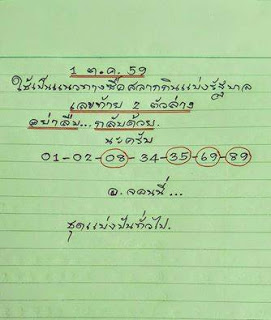 1 ต.ค. 59
ใช้เป็นแนวทางซื้อสลากกินแบ่งรัฐบาล
เลขท้าย 2 ตัวล่าง
อย่าลืม...กลับด้วย.
นะครับ
01-02-08-34-35-69-89
อ. จอนนี่...
ชุดแบ่งปันทั่วไป.